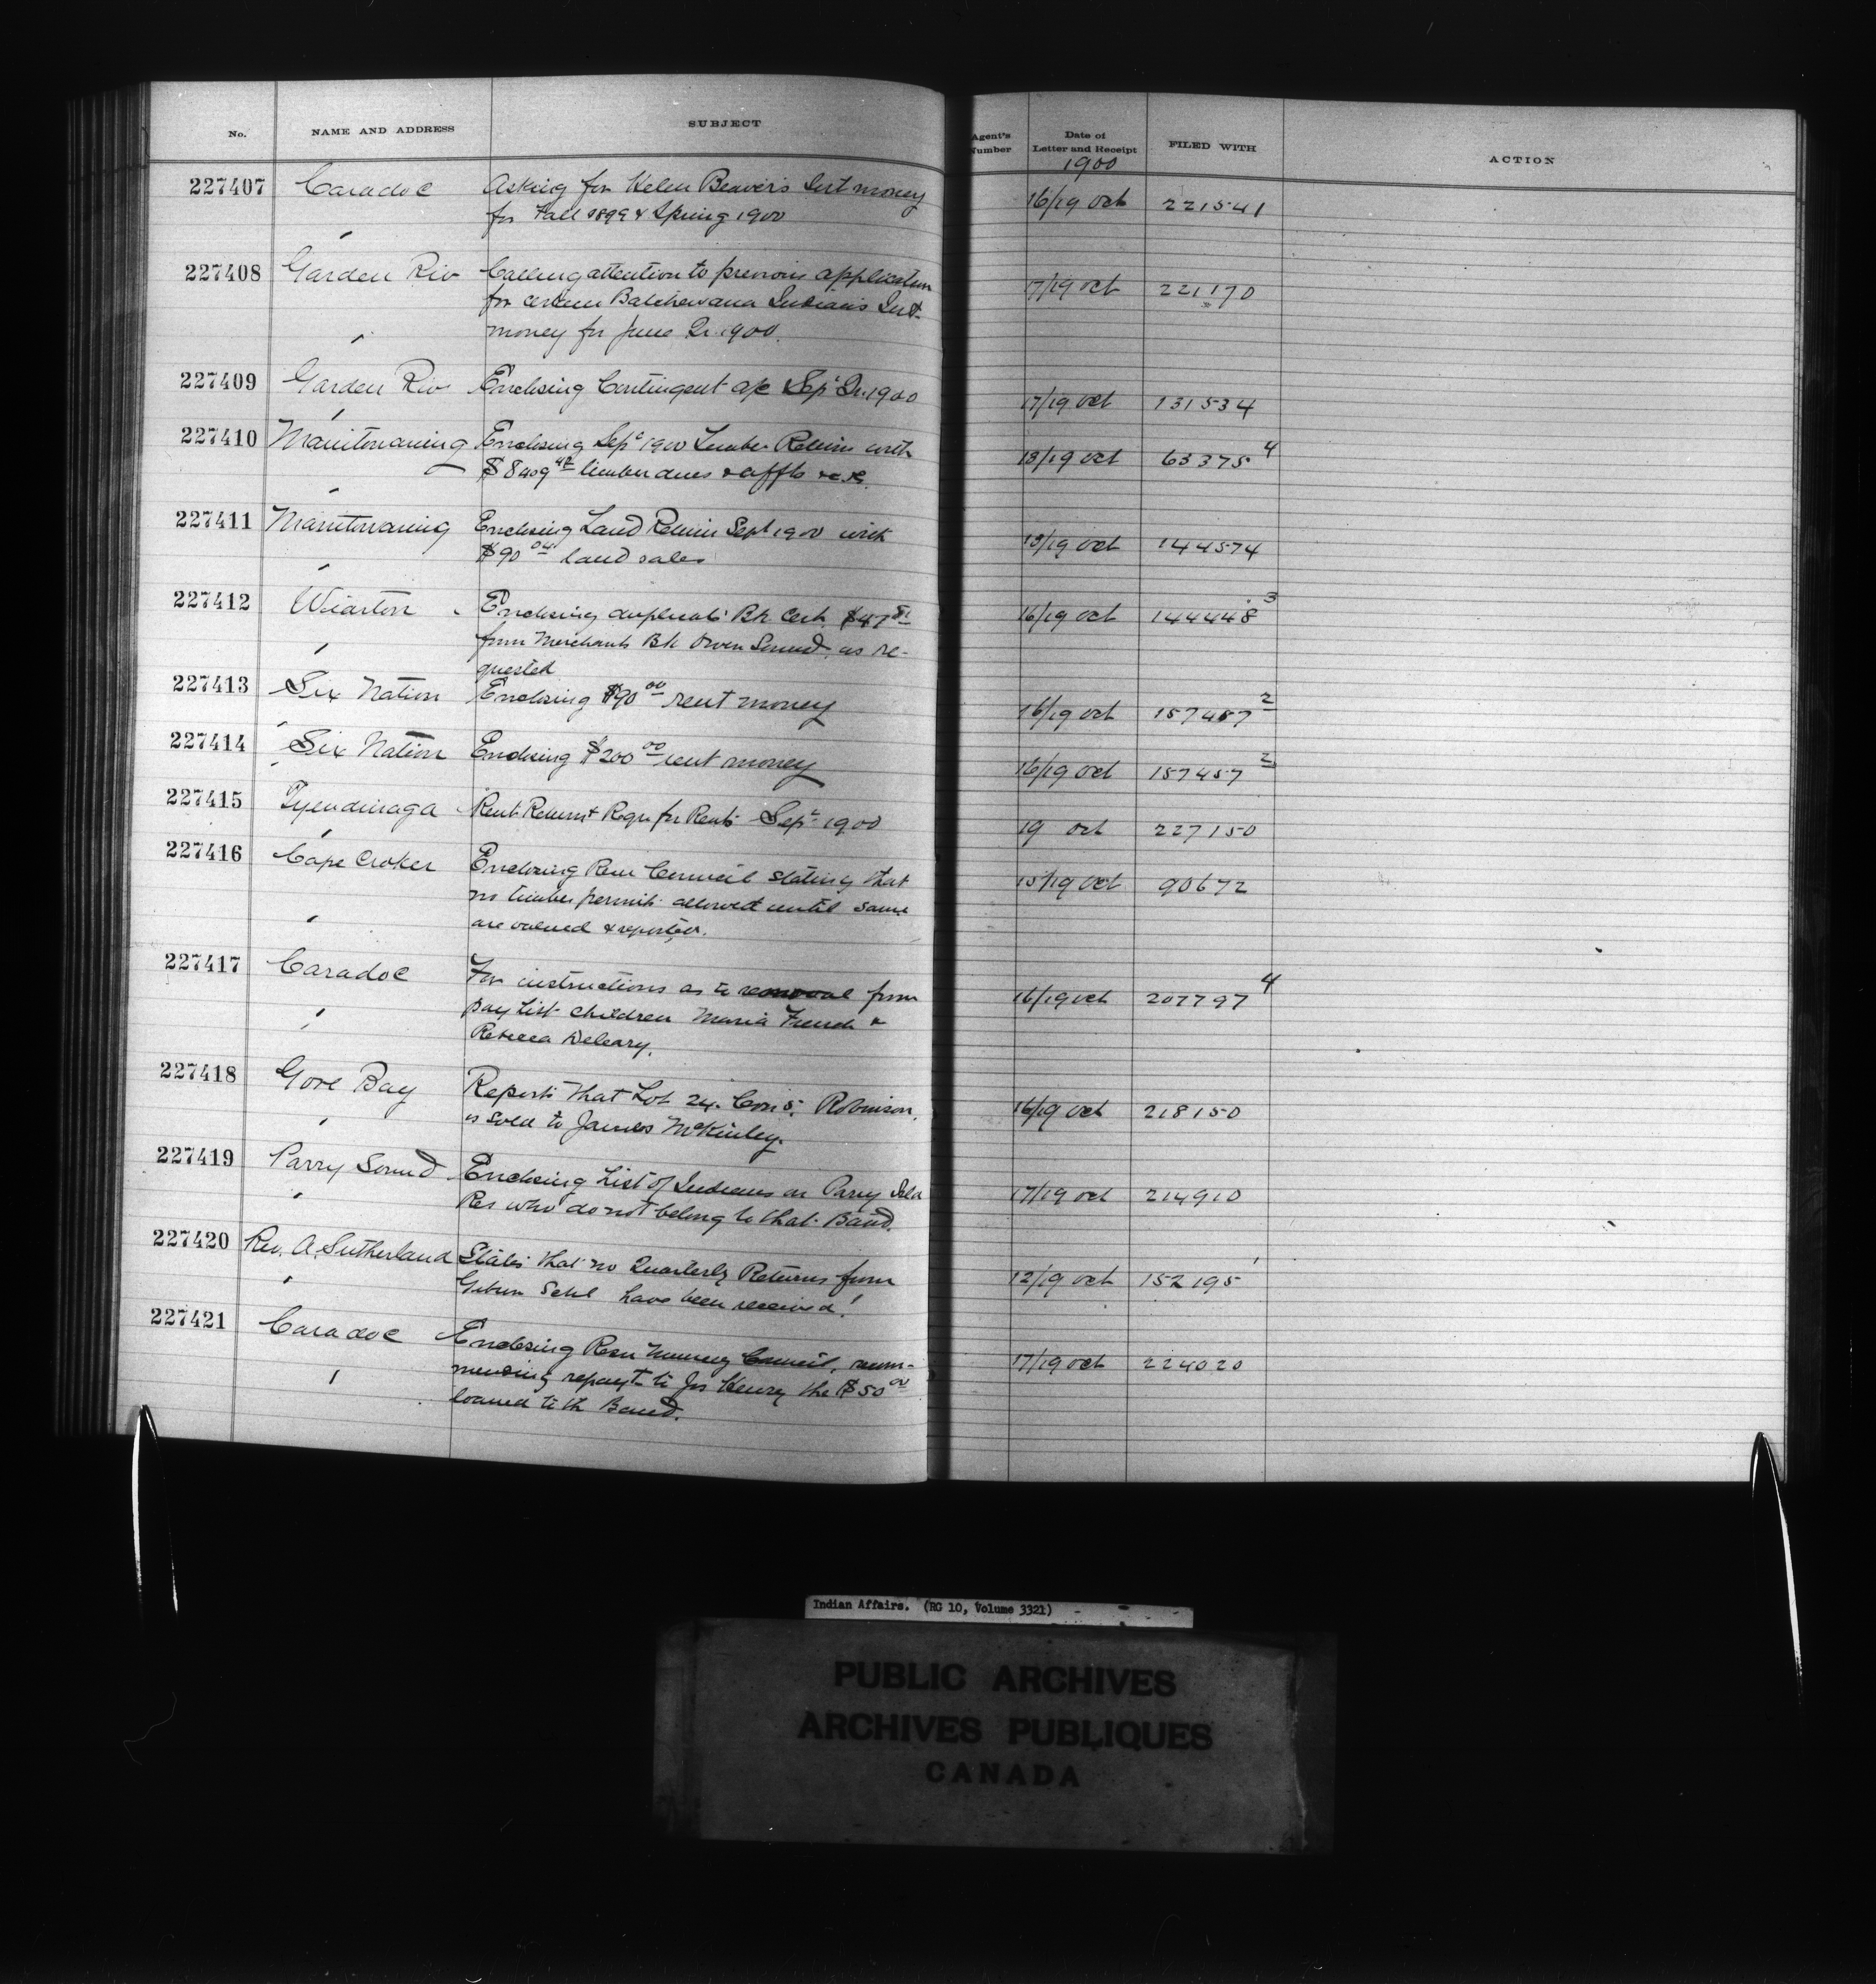 No. NAME AND ADDRESS SUBJECT Agent's Number Date of Letter and Receipt FILED WITH ACTION
1900
227407 Caradoc Asking for Helen Beaver's Int money 16/19 Oct 221541
for Fall 1899 & Spring 1900
227408 Garden Riv Calling attention to previous application 17/19 oct 221170
for certain Batchewana Indians Int
money for June Qr. 1900.
227409 Garden Riv Enclosing Contingent a/c Sept Qr. 1900 17/19 oct 131534
227410 Manitowaning Enclosing Sept 1900 Timber Return with 18/19 oct 63375 4
timber dues & affts
227411 Manitowaning Enclosing Land Return Sept 1900 with 18/19 oct 144574
$90 04 land sales
227412 Wiarton Enclosing duplicate Bk Cert. 16/19 oct 144448 3
from Merchants Bk Owen Sound, as re-
quested
227413 Six Nation Enclosing $90 00 rent money 16/19 oct 157457 2
227414 Six Nation Enclosing $200 00 rent money 16/19 oct 157457 2
227415 Tyendinaga Rent Return & Reqn for Rents Sept 1900 19 oct 227150
227416 Cape Croker Enclosing Resn Council stating that 15/19 Oct 90672
no timber permits allowed until same
are valued & reported.
227417 Caradoc For instructions as to removal from 16/19 oct 207797 4
pay list children Maria French &
Rebecca Deleary.
227418 Gore Bay Reports that Lot 24. Con 5. Robinson, 16/19 oct 218150
is sold to James McKinley.
227419 Parry Sound Enclosing List of Indians on Parry Isld 17/19 oct 214910
Res who do not belong to that Band.
227420 Rev. A. Sutherland States that no Quarterly Returns from 12/19 oct 152195 1
Schl have been received!
227421 Caradoc Enclosing Resn Muncey Council, recom- 17/19 oct 224020
mending repayt to Jos Henry the $50 00
loaned to th Band.
Indian Affairs. (RG 10, Volume 3321)
PUBLIC ARCHIVES
ARCHIVES PUBLIQUES
CANADA